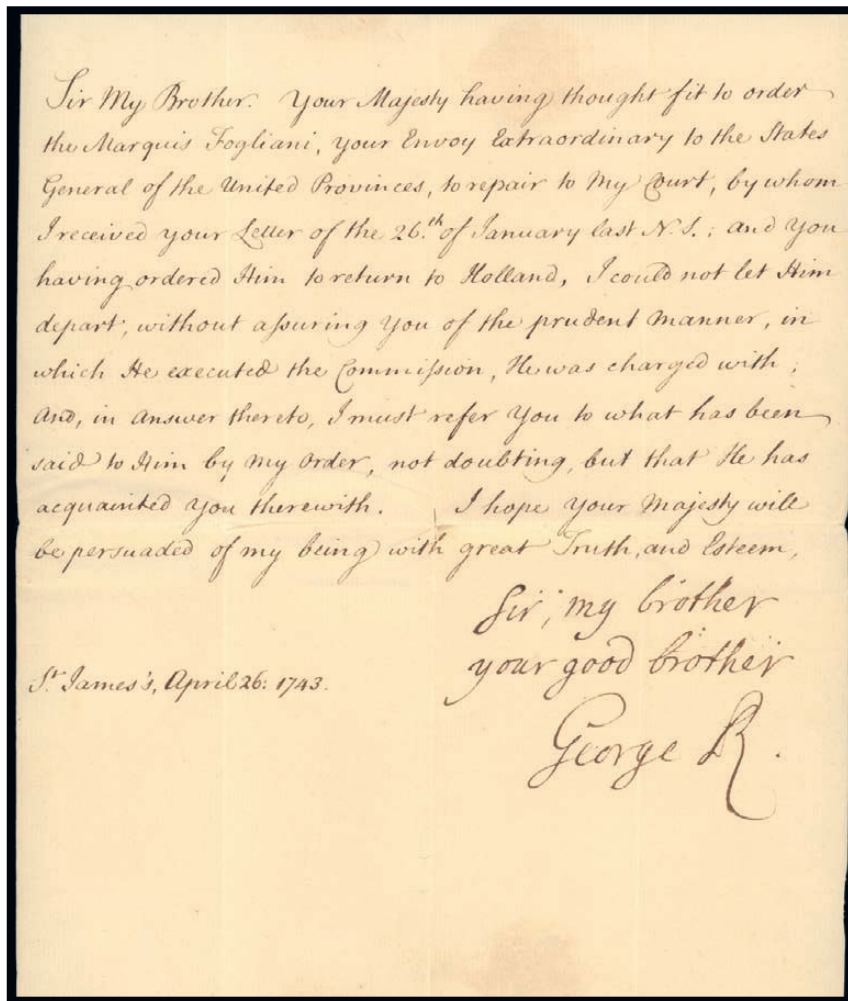 Sir My Brother. Your Majesty having thought fit to order
the Marquis Fogliani, your Envoy Extraordinary to the States
General of the United Provinces, to repair to My Court, by whom
I received your Letter of the 26.th of January last N.S.; and You
having ordered Him to return to Holland, I could not let Him
depart, without aſsuring You of the prudent Manner, in
which He executed the Commiſsion, He was charged with;
And, in Answer thereto, I must refer You to what has been
said to Him by My Order, not doubting, but that He has
acquainted You therewith. I hope Your Majesty will
be persuaded of my being with great Truth, and Esteem,
Sir, my brother
your good brother
St. James's, April 26: 1743.
George R.